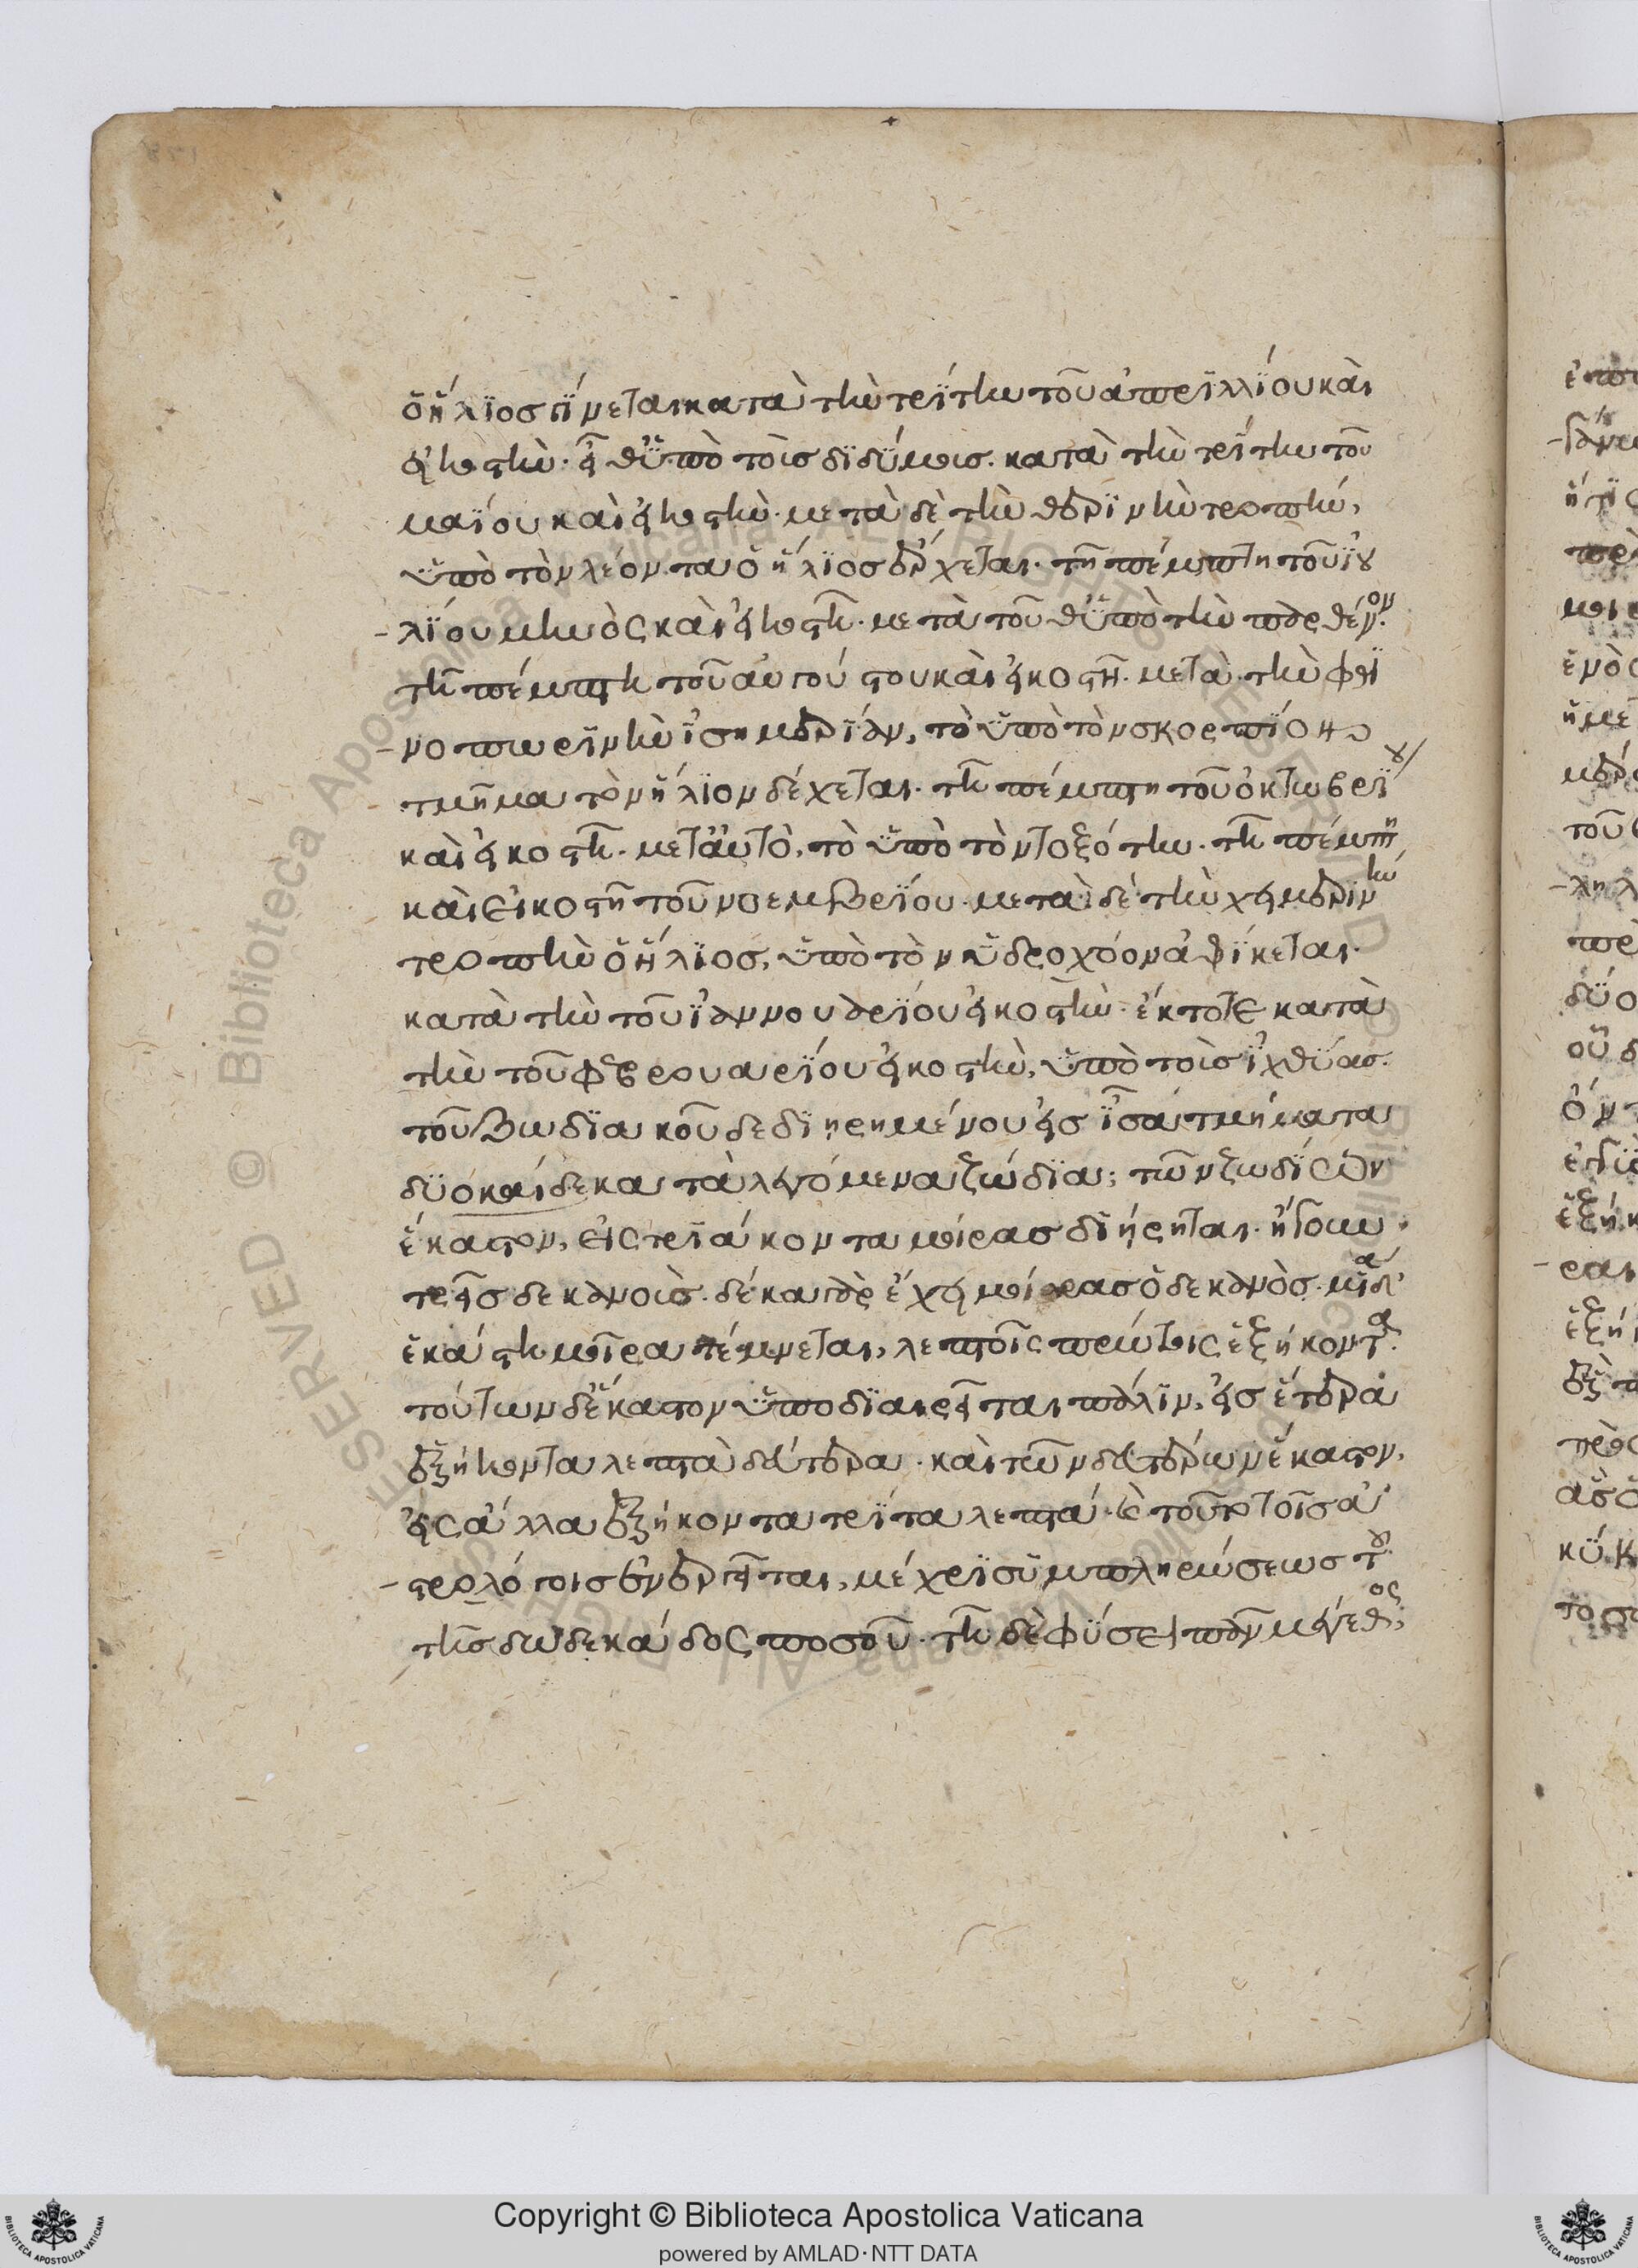 ὁ ἥλιος γίνεται κατὰ τὴν τρίτην τοῦ ἀπριλλίου καὶ
εἰκοστὴν. εἶθ ὑπὸ τοῖς διδύμοις. κατὰ τὴν τρίτην τοῦ
μαΐου καὶ εἰκοστὴν. μετὰ δὲ τὴν θερινὴν τροπήν,
ὑπὸ τὸν λέοντα ὁ ἥλιος ἔρχεται. τῆ πέμπτη τοῦ ἰου
λίου μηνὸς καὶ εἰκοστῆ. μετὰ τοῦθ ὑπὸ τὴν παρθένον.
τῆ πέμπτη τοῦ αὐγούστου καὶ εἰκοστῆ. μετὰ τὴν φθι
νοπωρινὴν ἰσημερίαν, τὸ ὑπὸ τὸν σκορπίον
τμῆμα τὸν ἥλιον δέχεται. τῆ πέμπτη τοῦ ὀκτωβρίου
καὶ εἰκοστῆ. μετ αὐτὸ, τὸ ὑπὸ τὸν τοξότην. τῆ πέμπτη
καὶ εἰκοστῆ τοῦ νοεμβρίου. μετὰ δὲ τὴν χειμερινὴν
τροπὴν ὁ ἥλιος, ὑπὸ τὸν ὑδροχόον ἀφίκεται.
κατὰ τὴν τοῦ ἰαννουαρίου εἰκοστὴν. ἔκτοτε κατὰ
τὴν τοῦ φεβρουαρίου εἰκοστὴν, ὑπὸ τοὶς ἰχθύας.
τοῦ ζωδιακοῦ δεδιηρημένου εἰς ἴσα τμήματα
δυοκαίδεκα τὰ λεγόμενα ζώδια; τῶν ζωδίων
ἕκαστον, εἰς τριάκοντα μοίρας διήρηται. ἤγουν
τρεῖς δεκανοὶς. δέκα γὰρ ἔχει μοίρας ὁ δεκανὸς. μία δ'
ἑκάστη μοῖρα τέμνεται, λεπτοῖς πρώτοις ἑξήκοντα.
τούτων δ ἕκαστον ὑποδιαιρεῖται πάλιν, εἰς ἕτερα
ἑξήκοντα λεπτὰ δεύτερα. καὶ τῶν δευτέρων ἕκαστον,
εἰς ἄλλα ἑξήκοντα τρίτα λεπτά. καὶ τοῦτο τοῖς ἀ
στρολόγοις ἐνεργεῖται, μέχρι συμπληρώσεως τοῦ
τῆς δωδεκάδος ποσοῦ. τῆ δὲ φύσει πᾶν μέγεθος,